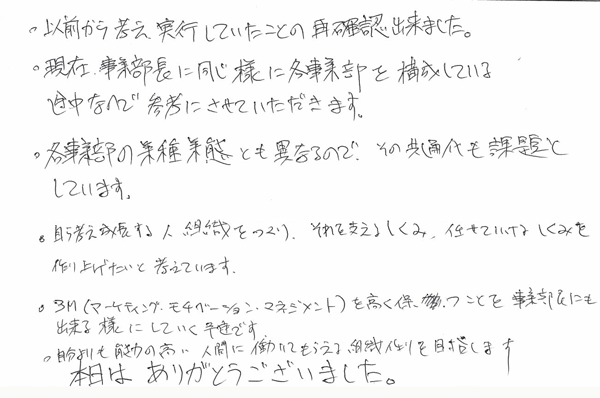 ・以前から考え、実行していたことの再確認出来ました。
・現在、事業部長に同じ様に各事業部を構成している
途中なので参考にさせていただきます。
・各事業部の業種業態とも異なるので、その共通代も課題と
しています。
・自ら考え成長する人、組織をつくり、それを支えるしくみ、任せていけるしくみを
作り上げたいと考えています。
・3M(マーケティング・モチベーション・マネジメント)を高く保つことを事業部長にも
出来る様にしていく予定です
・自分よりも能力の高い人間に働いてもらえる組織作りを目指します
本日はありがとうございました。